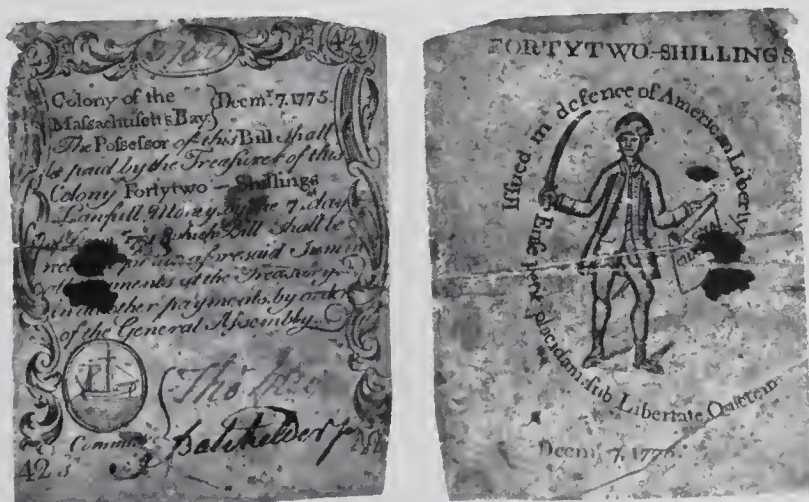 42 s
Colony of the
Massachusetts Bay
Decmr. 7. 1775.
The Possessor of this Bill shall
be paid by the Treasurer of this
Colony Fortytwo Shillings
Lawfull Money by the 7. day
which Bill shall be
aforesaid Sum in
at the Treasury
in all other payments by order
of the General Assembly
Tho
Committee
Batchelder
42 s
FORTYTWO-SHILLINGS
Issued in defence of American Liberty
Ense petit placidam, sub Libertate Quietem
Decmr. 7. 1775.